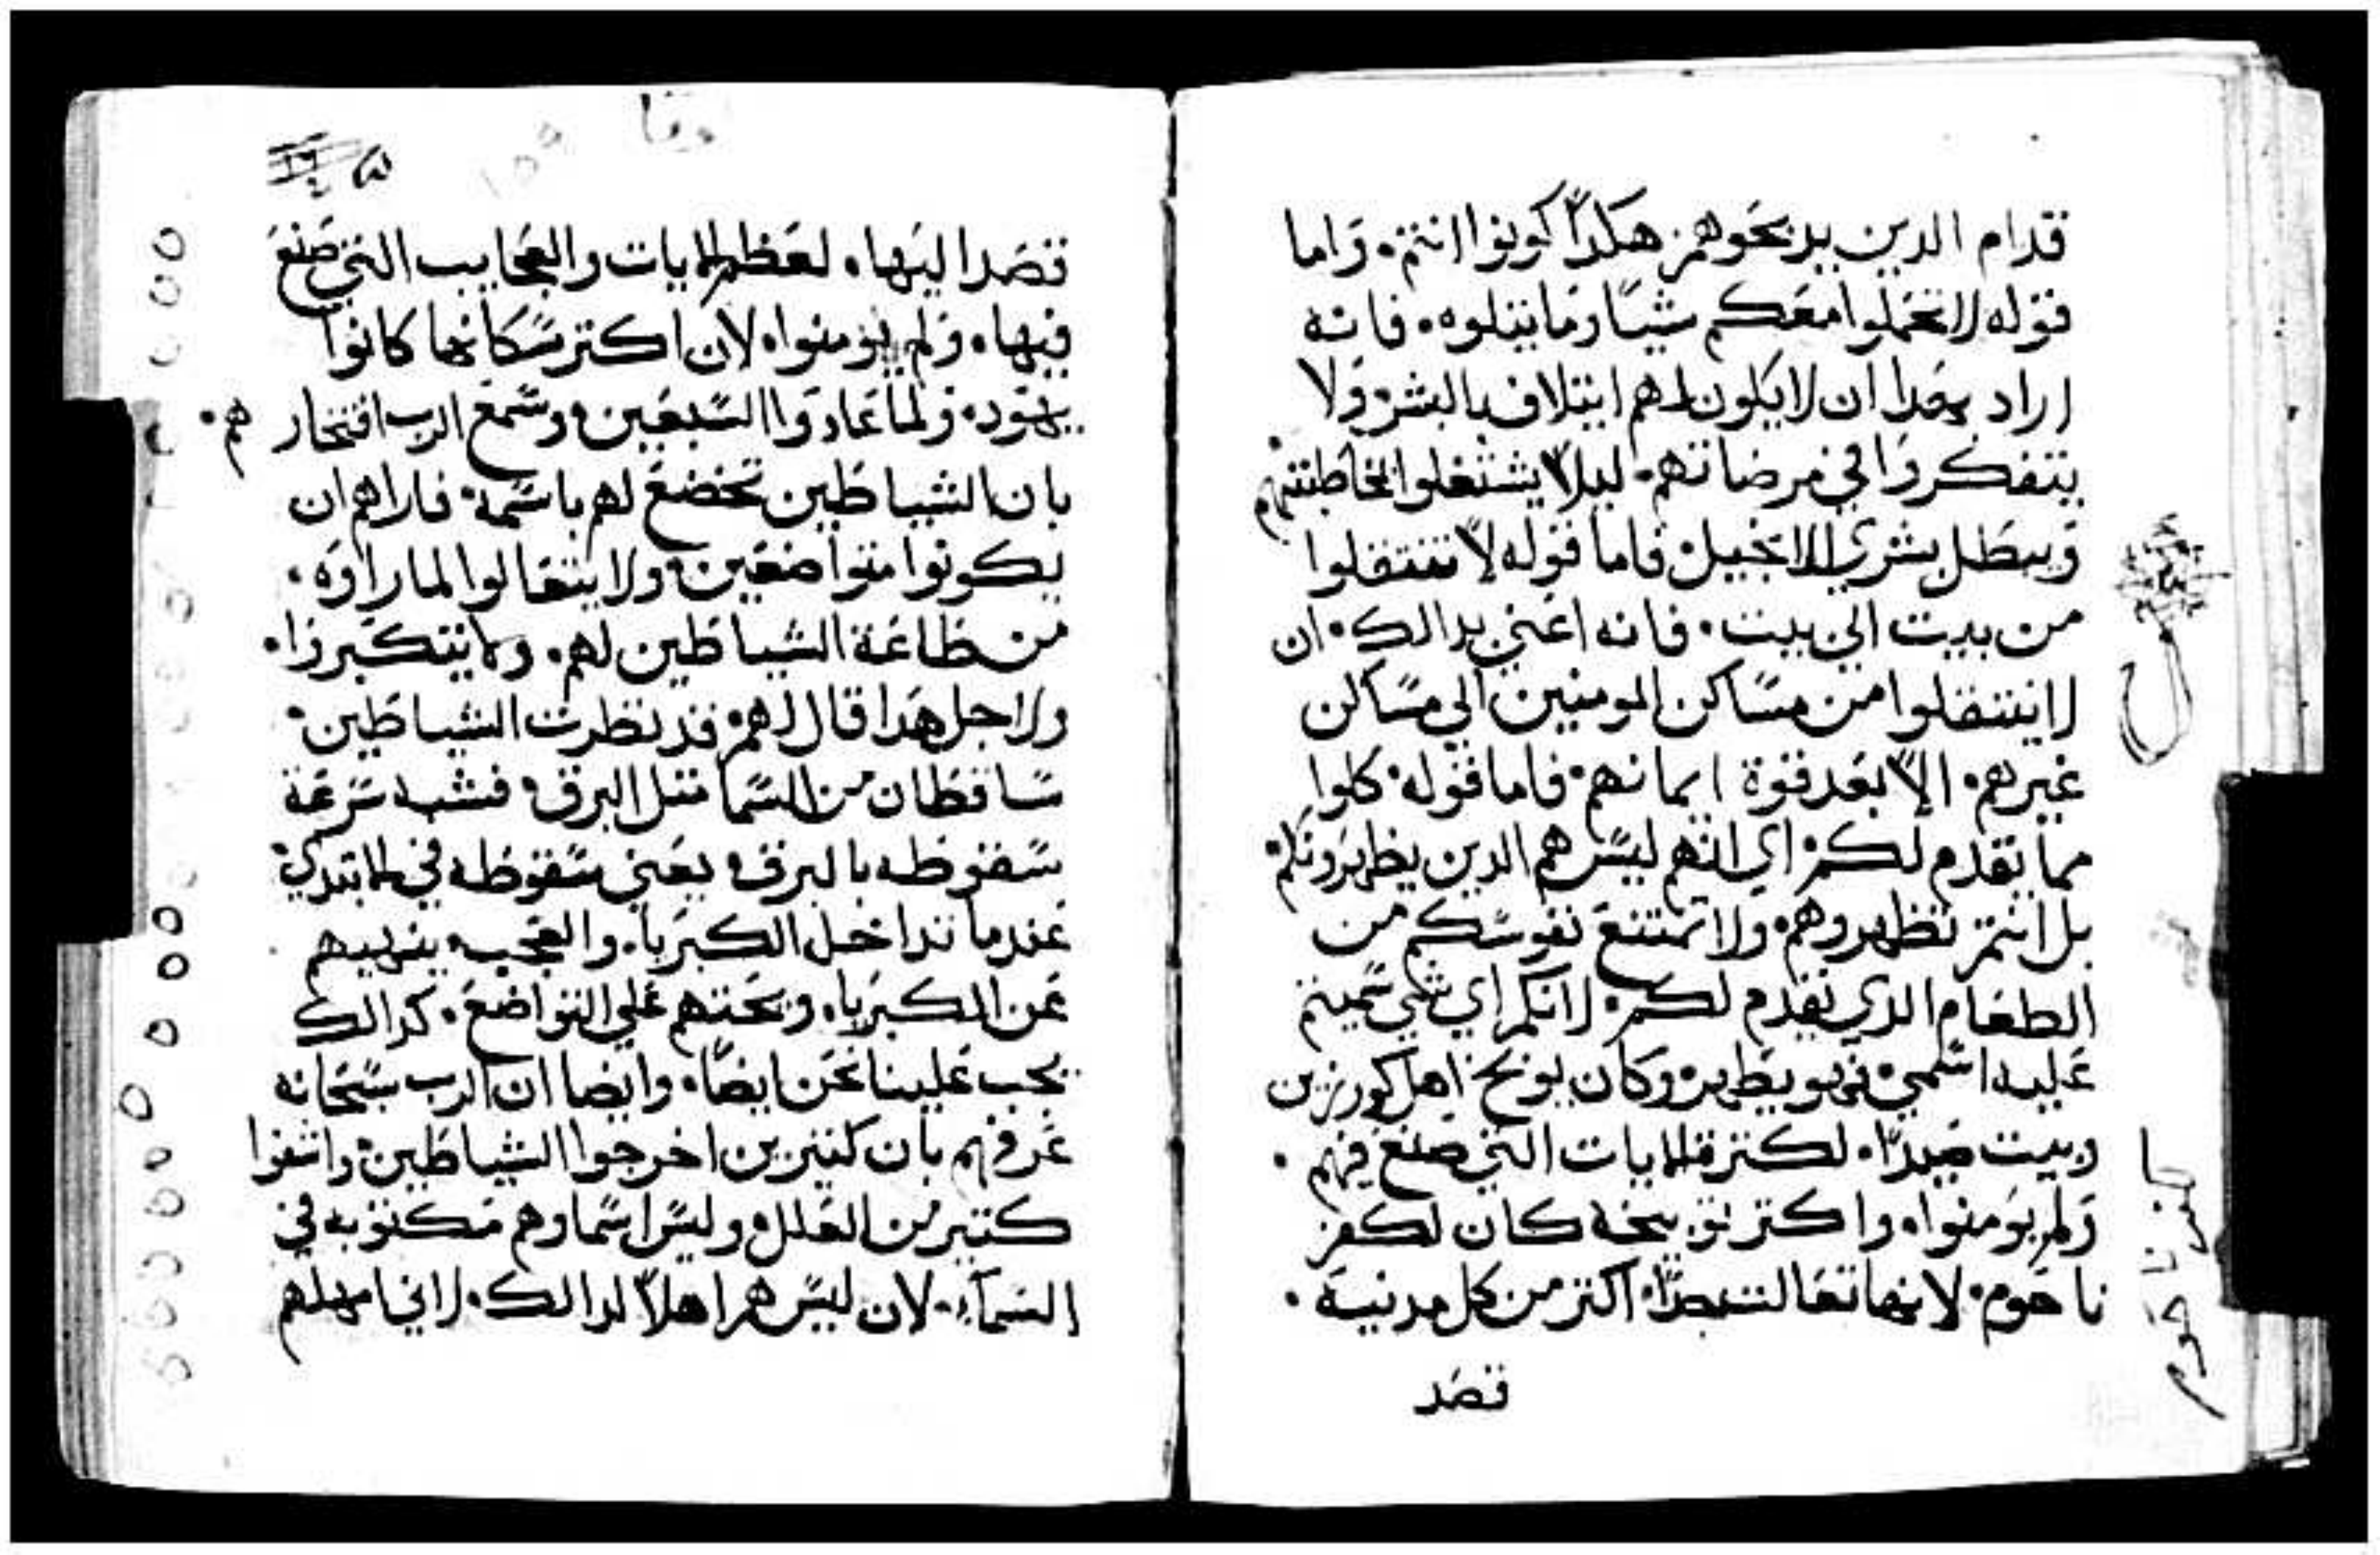 قدام الدين يدبحوهم هكدًا كونوا انتم. واما
قوله لا تحملوا معكم شيًا وما يتلوه. فانه
اراد بهدا ان لا يكون لهم ايتلاف بالبشر ولا
يتفكروا في مرضاتهم. ليلاّ يشتغلوا بمخاطبتهم
وببطل بشري الانجيل. فاما قوله لا تنتقلوا
من بيت الي بيت. فانه اعني بدالك. ان
لا ينتقلوا من مساكن المومنين الي مساكن
غيرهم. الاّ بعد قوة ايمانهم. فاما قوله. كلوا
مما يقدم لكم. اي انهم ليس هم الدين يطهرونكم
بل انتم تطهروهم. ولا تمتنع نفوسكم من
الطعام الدي يقدم لكم. لانكم اي شي سميتم
عليه اسمي. فهو يطهر. وكان يوبخ اهل كورزين
وبيت صيدا. لكترة الايات التي صنع فيهم.
ولم يومنوا. واكتر توبيخه كان لكفر
ناحوم. لانها تعالت جدًا. اكتر من كل مدنية.
قصد
كفر ناحوم
لوقا
قصد اليها. لعظم الايات والعجايب التي صنع
فيها. ولم يومنوا. لان اكتر سكانها كانوا
يهود. ولما عادوا السبعين. وسمع الرب افتخارهم.
بان الشياطين تخضع لهم باسمه. فاراهم ان
يكونوا متواضعين. ولا يتعالوا لما راوه.
من طاعة الشياطين لهم. ولا يتكبروا.
ولاجل هدا قال لهم. قد نظرت الشياطين.
ساقطان من السما متل البرق. فشبه سرعة
سقوطه بالبرق. يعني سقوطه في الابتدي.
عندما تداخل الكبريا. والعجب. ينهيهم
عن الكبريا. ويحتهم علي التواضع. كدالك
يجب علينا نحن ايضًا. وايضا ان الرب سبحانه
عرفهم بان كتيرين اخرجوا الشياطين. واشفوا
كتير من العلل. وليس اسماوهم مكتوبه في
السمآ. لان ليس هم اهلاً لدالك. لاني امهلهم